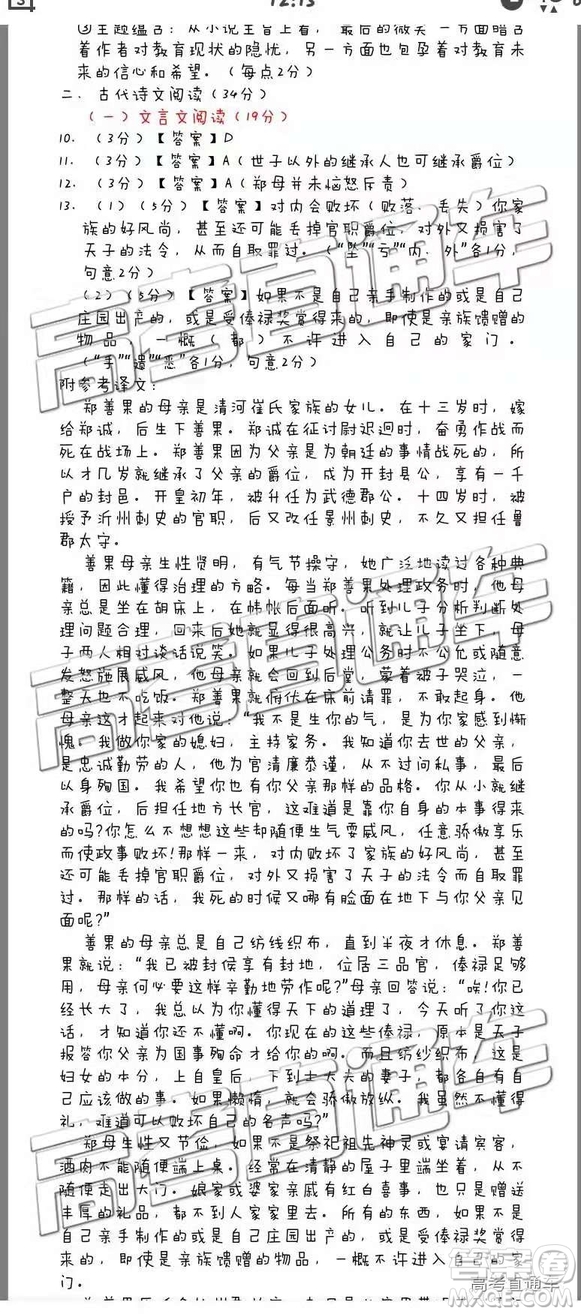 12:13
③主题蕴含：从小说主旨上看，最后的微笑一方面暗含
着作者对教育现状的隐忧，另一方面也包孕着对教育未
来的信心和希望。（每点2分）
二．古代诗文阅读（34分）
（一）文言文阅读（19分）
10．（3分）【答案】D
11．（3分）【答案】A（世子以外的继承人也可继承爵位）
12．（3分）【答案】A（郑母并未恼怒斥责）
13．（1）（5分）【答案】对内会败坏（败落、丢失）你家
族的好风尚，甚至还可能丢掉官职爵位，对外又损害了
天子的法令，从而自取罪过。（“坠”“亏”“内、外”各1分，
句意2分）
（2）（5分）【答案】如果不是自己亲手制作的或是自己
庄园出产的，或是受俸禄奖赏得来的，即使是亲族馈赠的
物品，一概（都）不许进入自己的家门。
（“手”“遗”“悉”各1分，句意2分）
附参考译文：
郑善果的母亲是清河崔氏家族的女儿。在十三岁时，嫁
给郑诚，后生下善果。郑诚在征讨尉迟迥时，奋勇作战而
死在战场上。郑善果因为父亲是为朝廷的事情战死的，所
以才几岁就继承了父亲的爵位，成为开封县公，享有一千
户的封邑。开皇初年，被升任为武德郡公。十四岁时，被
授予沂州刺史的官职，后又改任景州刺史，不久又担任鲁
郡太守。
善果母亲生性贤明，有气节操守，她广泛地读过各种典
籍，因此懂得治理的方略。每当郑善果处理政务时，他母
亲总是坐在胡床上，在帏帐后面听。听到儿子分析判断处
理问题合理，回来后她就显得很高兴，就让儿子坐下，母
子两人相对谈话说笑。如果儿子处理公务时不公允或随意
发怒施展威风，他母亲就会回到后堂，蒙着被子哭泣，一
整天也不吃饭。郑善果就俯伏在床前请罪，不敢起身。他
母亲这才起来对他说：“我不是生你的气，是为你家感到惭
愧。我做你家的媳妇，主持家务。我知道你去世的父亲，
是忠诚勤劳的人，他为官清廉恭谨，从不过问私事，最后
以身殉国。我希望你也有你父亲那样的品格。你从小就继
承爵位，后担任地方长官，这难道是靠你自身的本事得来
的吗?你怎么不想想这些却随便生气耍威风，任意骄傲享乐
而使政事败坏!那样一来，对内败坏了家族的好风尚，甚至
还可能丢掉官职爵位，对外又损害了天子的法令而自取罪
过。那样的话，我死的时候又哪有脸面在地下与你父亲见
面呢?”
善果的母亲总是自己纺线织布，直到半夜才休息。郑善
果就说：“我已被封侯享有封地，位居三品官，俸禄足够
用，母亲何必要这样辛勤地劳作呢?”母亲回答说：“唉!你已
经长大了，我总以为你懂得天下的道理了，今天听了你这
话，才知道你还不懂啊。你现在的这些俸禄，原本是天子
报答你父亲为国事殉命才给你的啊。而且纺纱织布，这是
妇女的本分，上自皇后，下到士大夫的妻子，都各自有自
己应该做的事。如果懒惰，就会骄傲放纵。我虽然不懂得
礼，难道可以败坏自己的名声吗?”
郑母生性又节俭，如果不是祭祀祖先神灵或宴请宾客，
酒肉不能随便端上桌。经常在清静的屋子里端坐着，从不
随便走出大门。娘家或婆家亲戚有红白喜事，也只是赠送
丰厚的礼品，都不到人家家里去。所有的东西，如果不是
自己亲手制作的或是自己庄园出产的，或是受俸禄奖赏得
来的，即使是亲族馈赠的物品，一概不许进入自己的家
门。
高考直通车